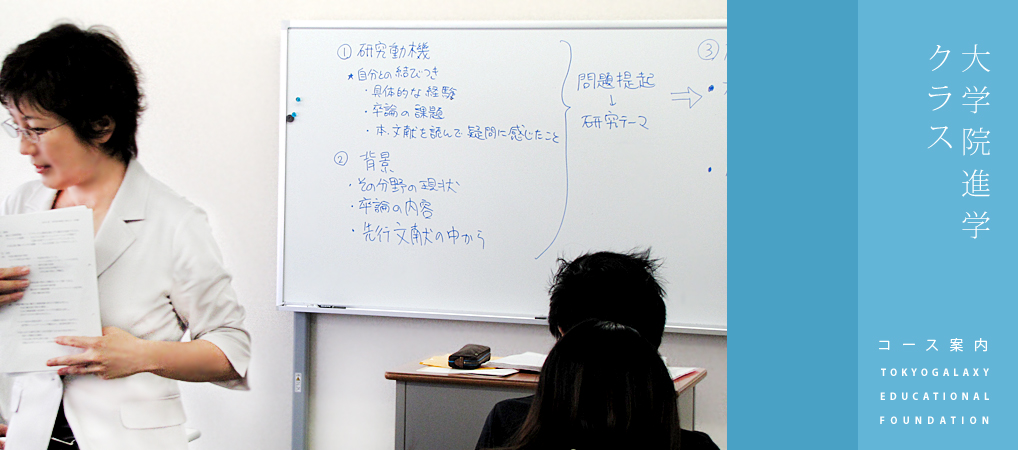 ① 研究動機
★自分との結びつき
・具体的な経験
・卒論の課題
・本、文献を読んで疑問に感じたこと
② 背景
・その分野の現状
・卒論の内容
・先行文献の中から
問題提起
↓
研究テーマ
⇒
③
大学院進学
クラス
コース案内
TOKYOGALAXY
EDUCATIONAL
FOUNDATION